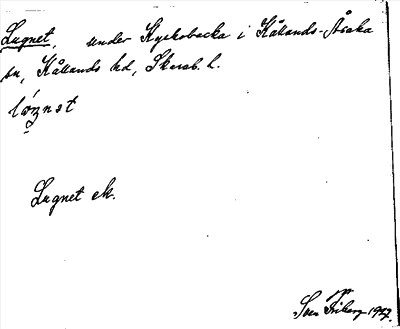 Lugnet, under Kyrkobacka i Kållands-Åsaka
sn, Kållands hd, Skarab. l.
Lugnet ek.
Sven Friberg 1927.